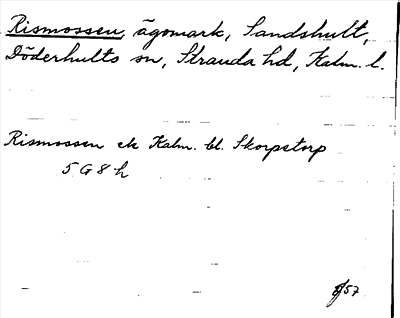 Rismossen, ägomark, Sandshult,
Döderhults sn, Stranda hd, Kalm. l.
Rismossen ek Kalm. bl. Skorpetorp
5 G 8 h
/57